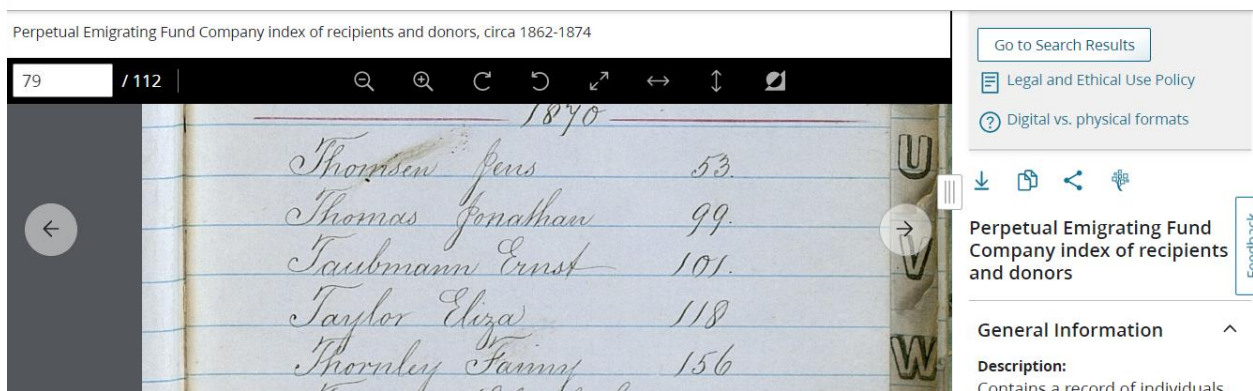 Perpetual Emigrating Fund Company index of recipients and donors, circa 1862-1874
79 / 112
1870
Thomsen Jens 53.
Thomas Jonathan 99.
Taubmann Ernst 101.
Taylor Eliza 118
Thornley Fanny 156
U
V
W
Go to Search Results
Legal and Ethical Use Policy
Digital vs. physical formats
Perpetual Emigrating Fund
Company index of recipients
and donors
Feedback
General Information
Description:
Contains a record of individuals